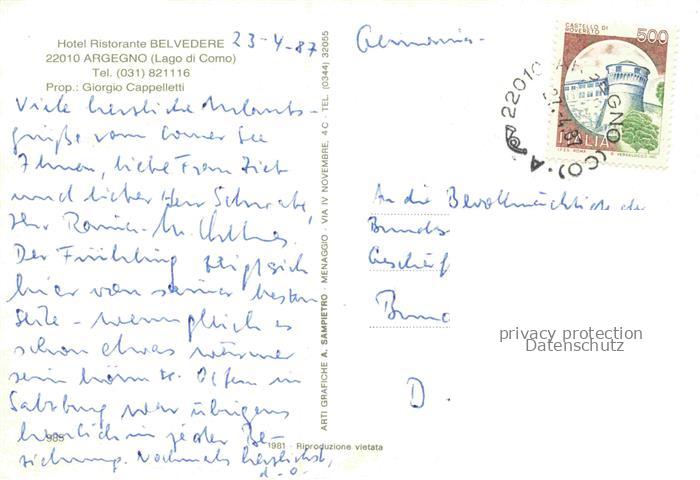 Hotel Ristorante BELVEDERE
22010 ARGEGNO (Lago di Como)
Tel. (031) 821116
Prop.: Giorgio Cappelletti
23-4-87
Viele herzliche Urlaubs-
grüße vom Comer See
Ihnen, liebe Frau
und lieber Herr Schwabe,
Ihr
Der Frühling zeigt sich
hier von seiner besten
Seite - wenngleich es
schon etwas wärmer
sein könnte. Ostern in
Salzburg war übrigens
herrlich in jeder Be-
ziehung. Nochmals herzlichst,
d. O.
985
1981 - Riproduzione vietata
ARTI GRAFICHE A. SAMPIETRO - MENAGGIO - VIA IV NOVEMBRE, 4 C - TEL. (0344) 32055
Germania
CASTELLO DI
ROVERETO
500
ITALIA
22010 ARGEGNO (CO)
An die Bevollmächtigte der
Bundes
Geschäf
D
privacy protection
Datenschutz